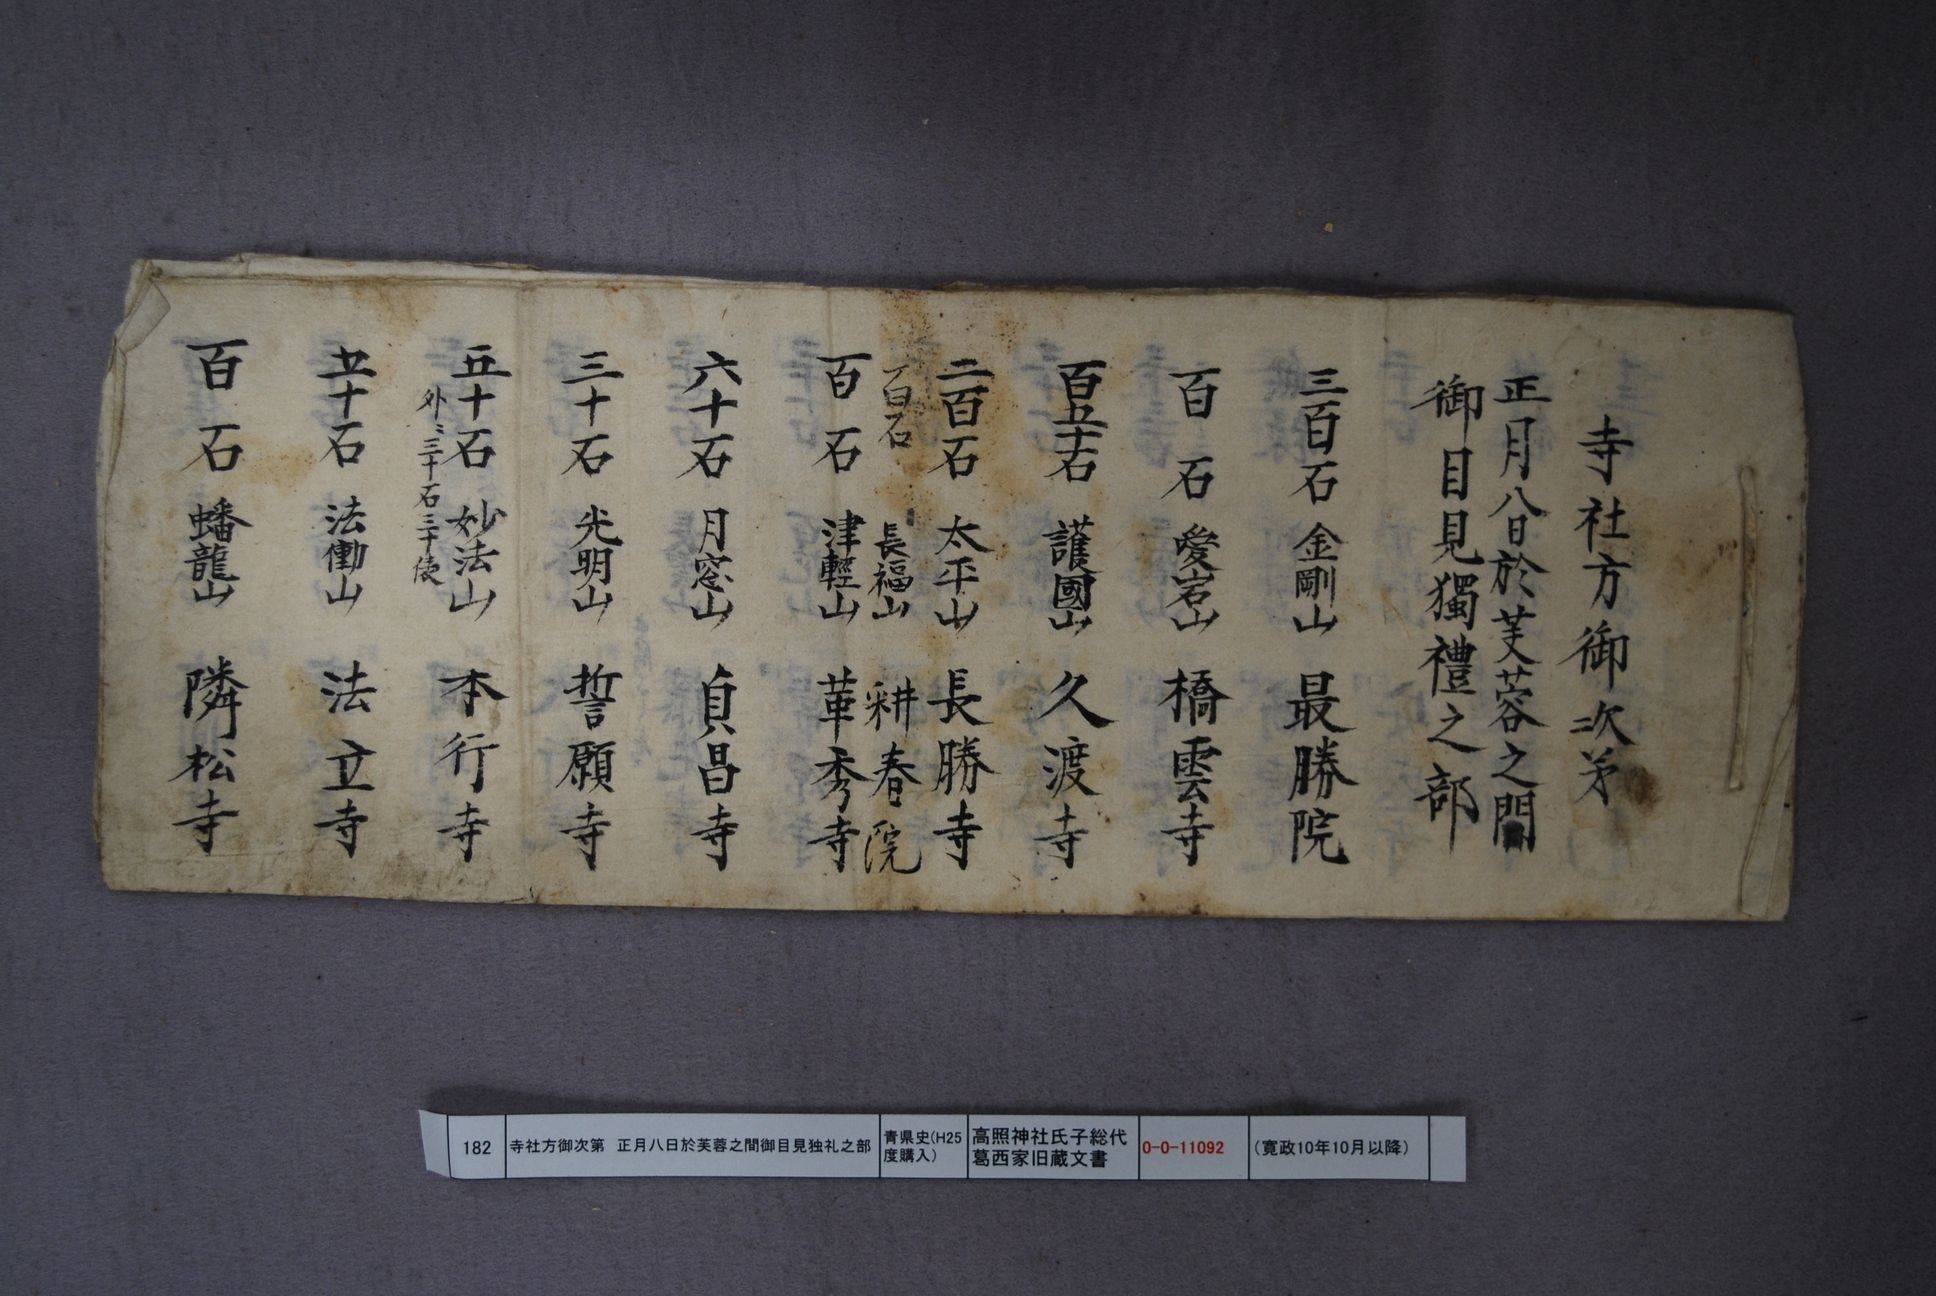 寺社方御次第
正月八日於芙蓉之間
御目見獨禮之部
三百石 金剛山 最勝院
百石 愛宕山 橋雲寺
百五十石 護國山 久渡寺
二百石 太平山 長勝寺
百石 長福山 耕春院
百石 津輕山 革秀寺
六十石 月窓山 貞昌寺
三十石 光明山 誓願寺
五十石 妙法山 本行寺
外ニ三十石三十俵
五十石 法働山 法立寺
百石 蟠龍山 隣松寺
182
寺社方御次第 正月八日於芙蓉之間御目見独礼之部
青県史(H25
度購入)
高照神社氏子総代
葛西家旧蔵文書
0-0-11092
(寛政10年10月以降)